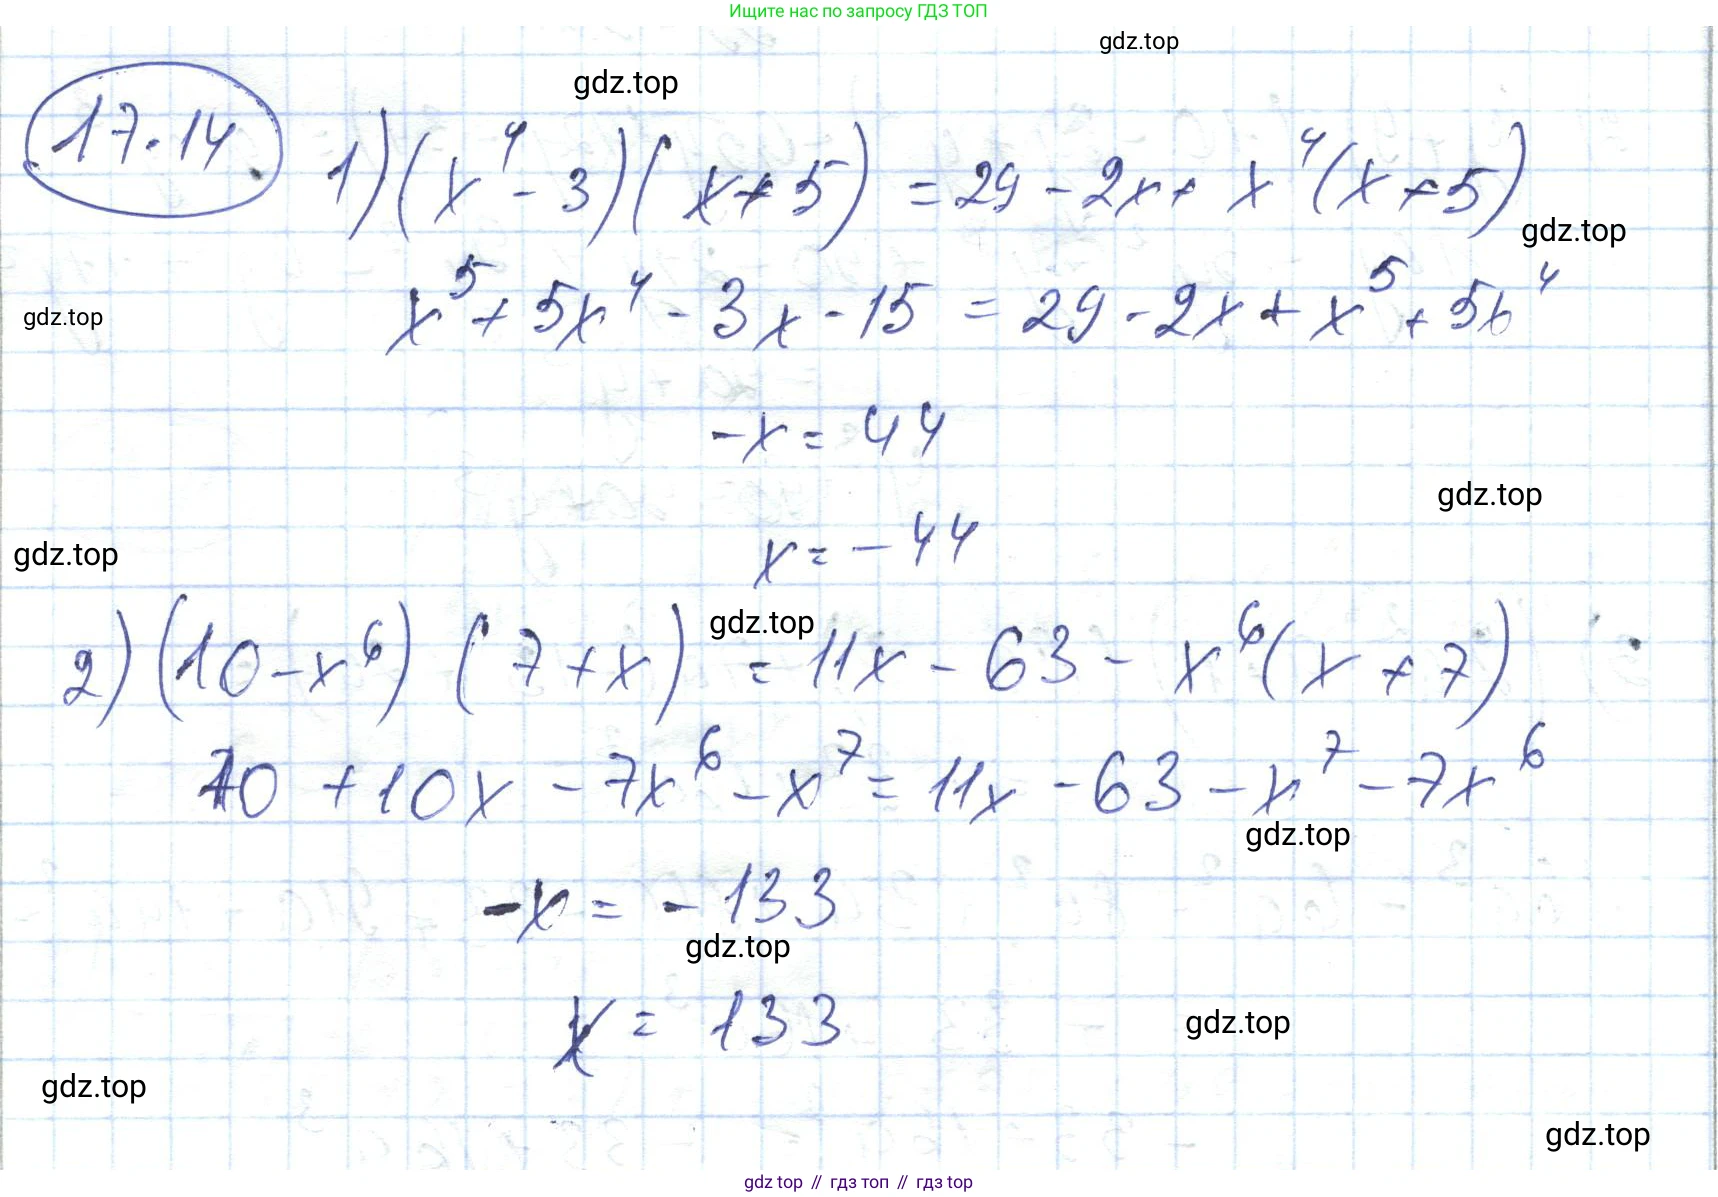 Ищите нас по запросу ГДЗ ТОП
gdz.top
gdz.top
17.14
1) (x⁴ - 3)(x + 5) = 29 - 2x + x⁴(x + 5)
gdz.top
x⁵ + 5x⁴ - 3x - 15 = 29 - 2x + x⁵ + 5x⁴
gdz.top
-x = 44
gdz.top
x = -44
gdz.top
gdz.top
2) (10 - x⁶) (7 + x) = 11x - 63 - x⁶(x + 7)
70 + 10x - 7x⁶ - x⁷ = 11x - 63 - x⁷ - 7x⁶
gdz.top
-x = -133
gdz.top
x = 133
gdz.top
gdz.top
gdz.top
gdz top // гдз топ // гдз top